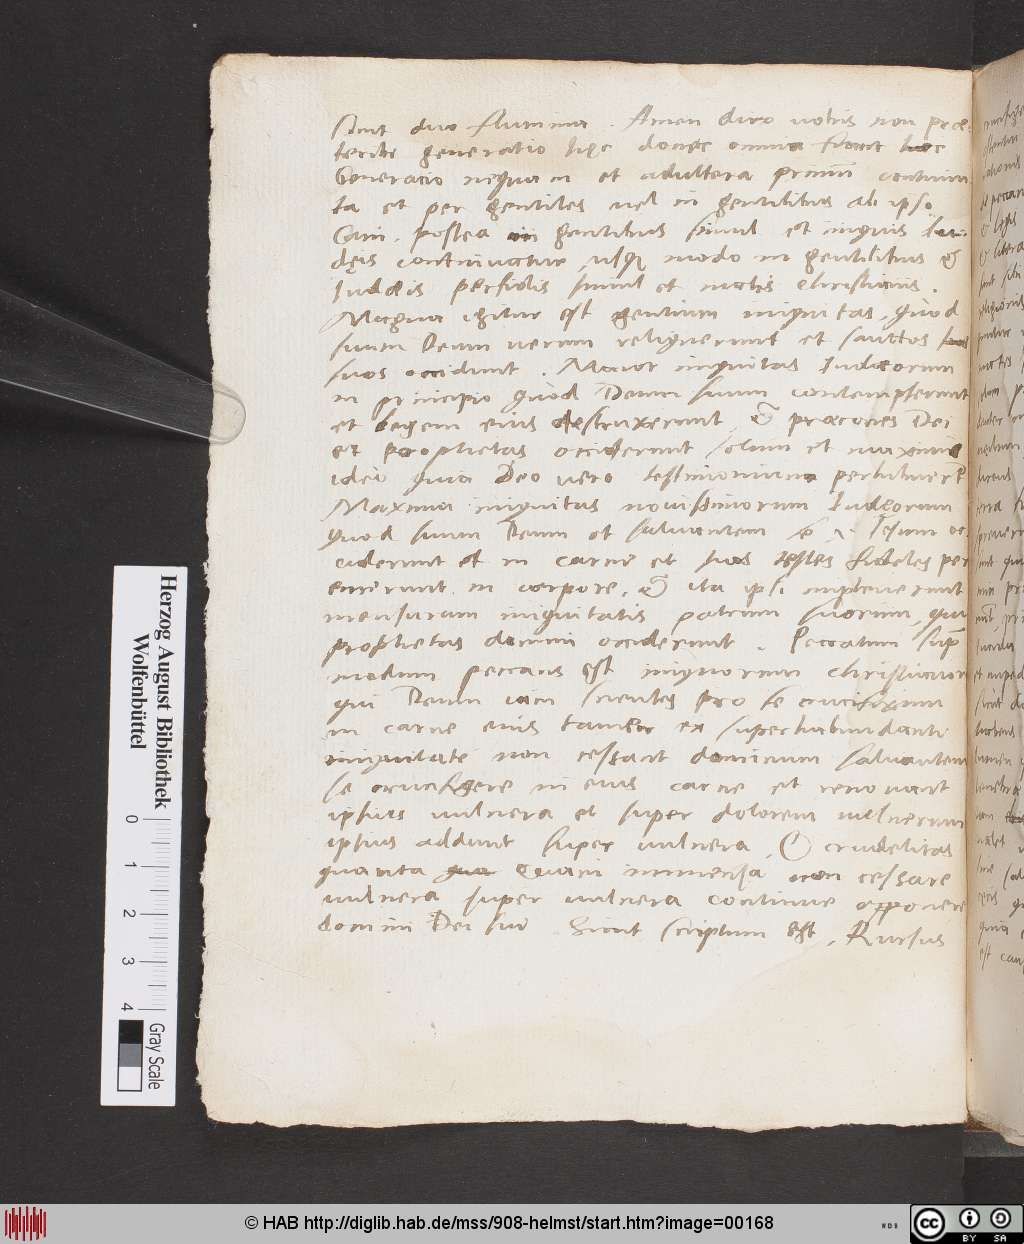 sunt duo flumina. Amen dico vobis non præ-
teribi generatio hęc donec omnia fiant hæc
Generatio nequam et adultera primũ continua
ta et per gentiles uel in gentilibus ab ipso
Cain. postea in gentibus simul et iniquis Iu
dęis continuatur, usq; modo in gentilibus &
Iudæis perfidis simul et malis christianis.
Magna igitur est gentium iniquitas, quod
suum Deum uerum relinquerunt et sanctos
suos occidunt. Maior iniquitas Iudæorum
in principio quod Deum suum contempserunt
et legem eius destruxerunt, & præcones Dei
et prophetas occiderunt solum et maxime
ideo quia Deo uero testimonium perhibuerũt
Maxima iniquitas nouissimorum Iudæorum
quod suum Deum et saluantem se Iesum oc
ciderunt et in carne et suos testes fideles per
emerunt in corpore, & ita ipsi impleuerunt
mensuram iniquitatis patrum suorum, qui
prophetas domini occiderunt. Peccatum sup
modum peccans est iniquorum christianorũ
qui Deum iam scientes pro se crucifixum
in carne eius tamen ex superhabundanti
iniquitate non cessant dominum saluantem
se crucifigere in eius carne et renouant
ipsius uulnera et super dolorem uulnerum
ipsius addunt super uulnera. O crudelitas
quanta quam immensa non cessare
uulnera super uulnera continue apponere
domini Dei sui. Sicut scriptum est. Rursus
Herzog August Bibliothek
Wolfenbüttel
0 1 2 3 4
Gray Scale
© HAB http://diglib.hab.de/mss/908-helmst/start.htm?image=00168
WDB
cc BY SA